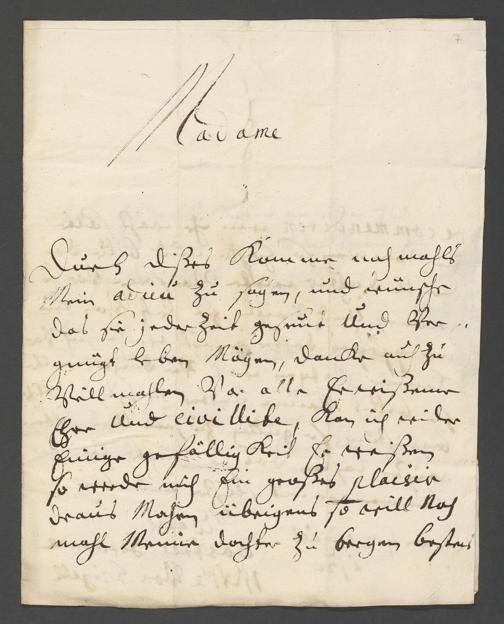 7.
Madame
Durch dißes Komme nochmahls
Mein adieu Zu sagen, und wünsche
das sie jeder Zeit gesunt Und Ver
gnügt leben Mögen, dancke auch Zu
Vill mahlen Vor alle Erwißene
Ehre Und civillite, Kan ich wider
Einige gefälligkeit Erweißen
so werde mich Ein großes plaisir
draus Machen übrigens so will Noch
mahl Meine dochter Zu besten